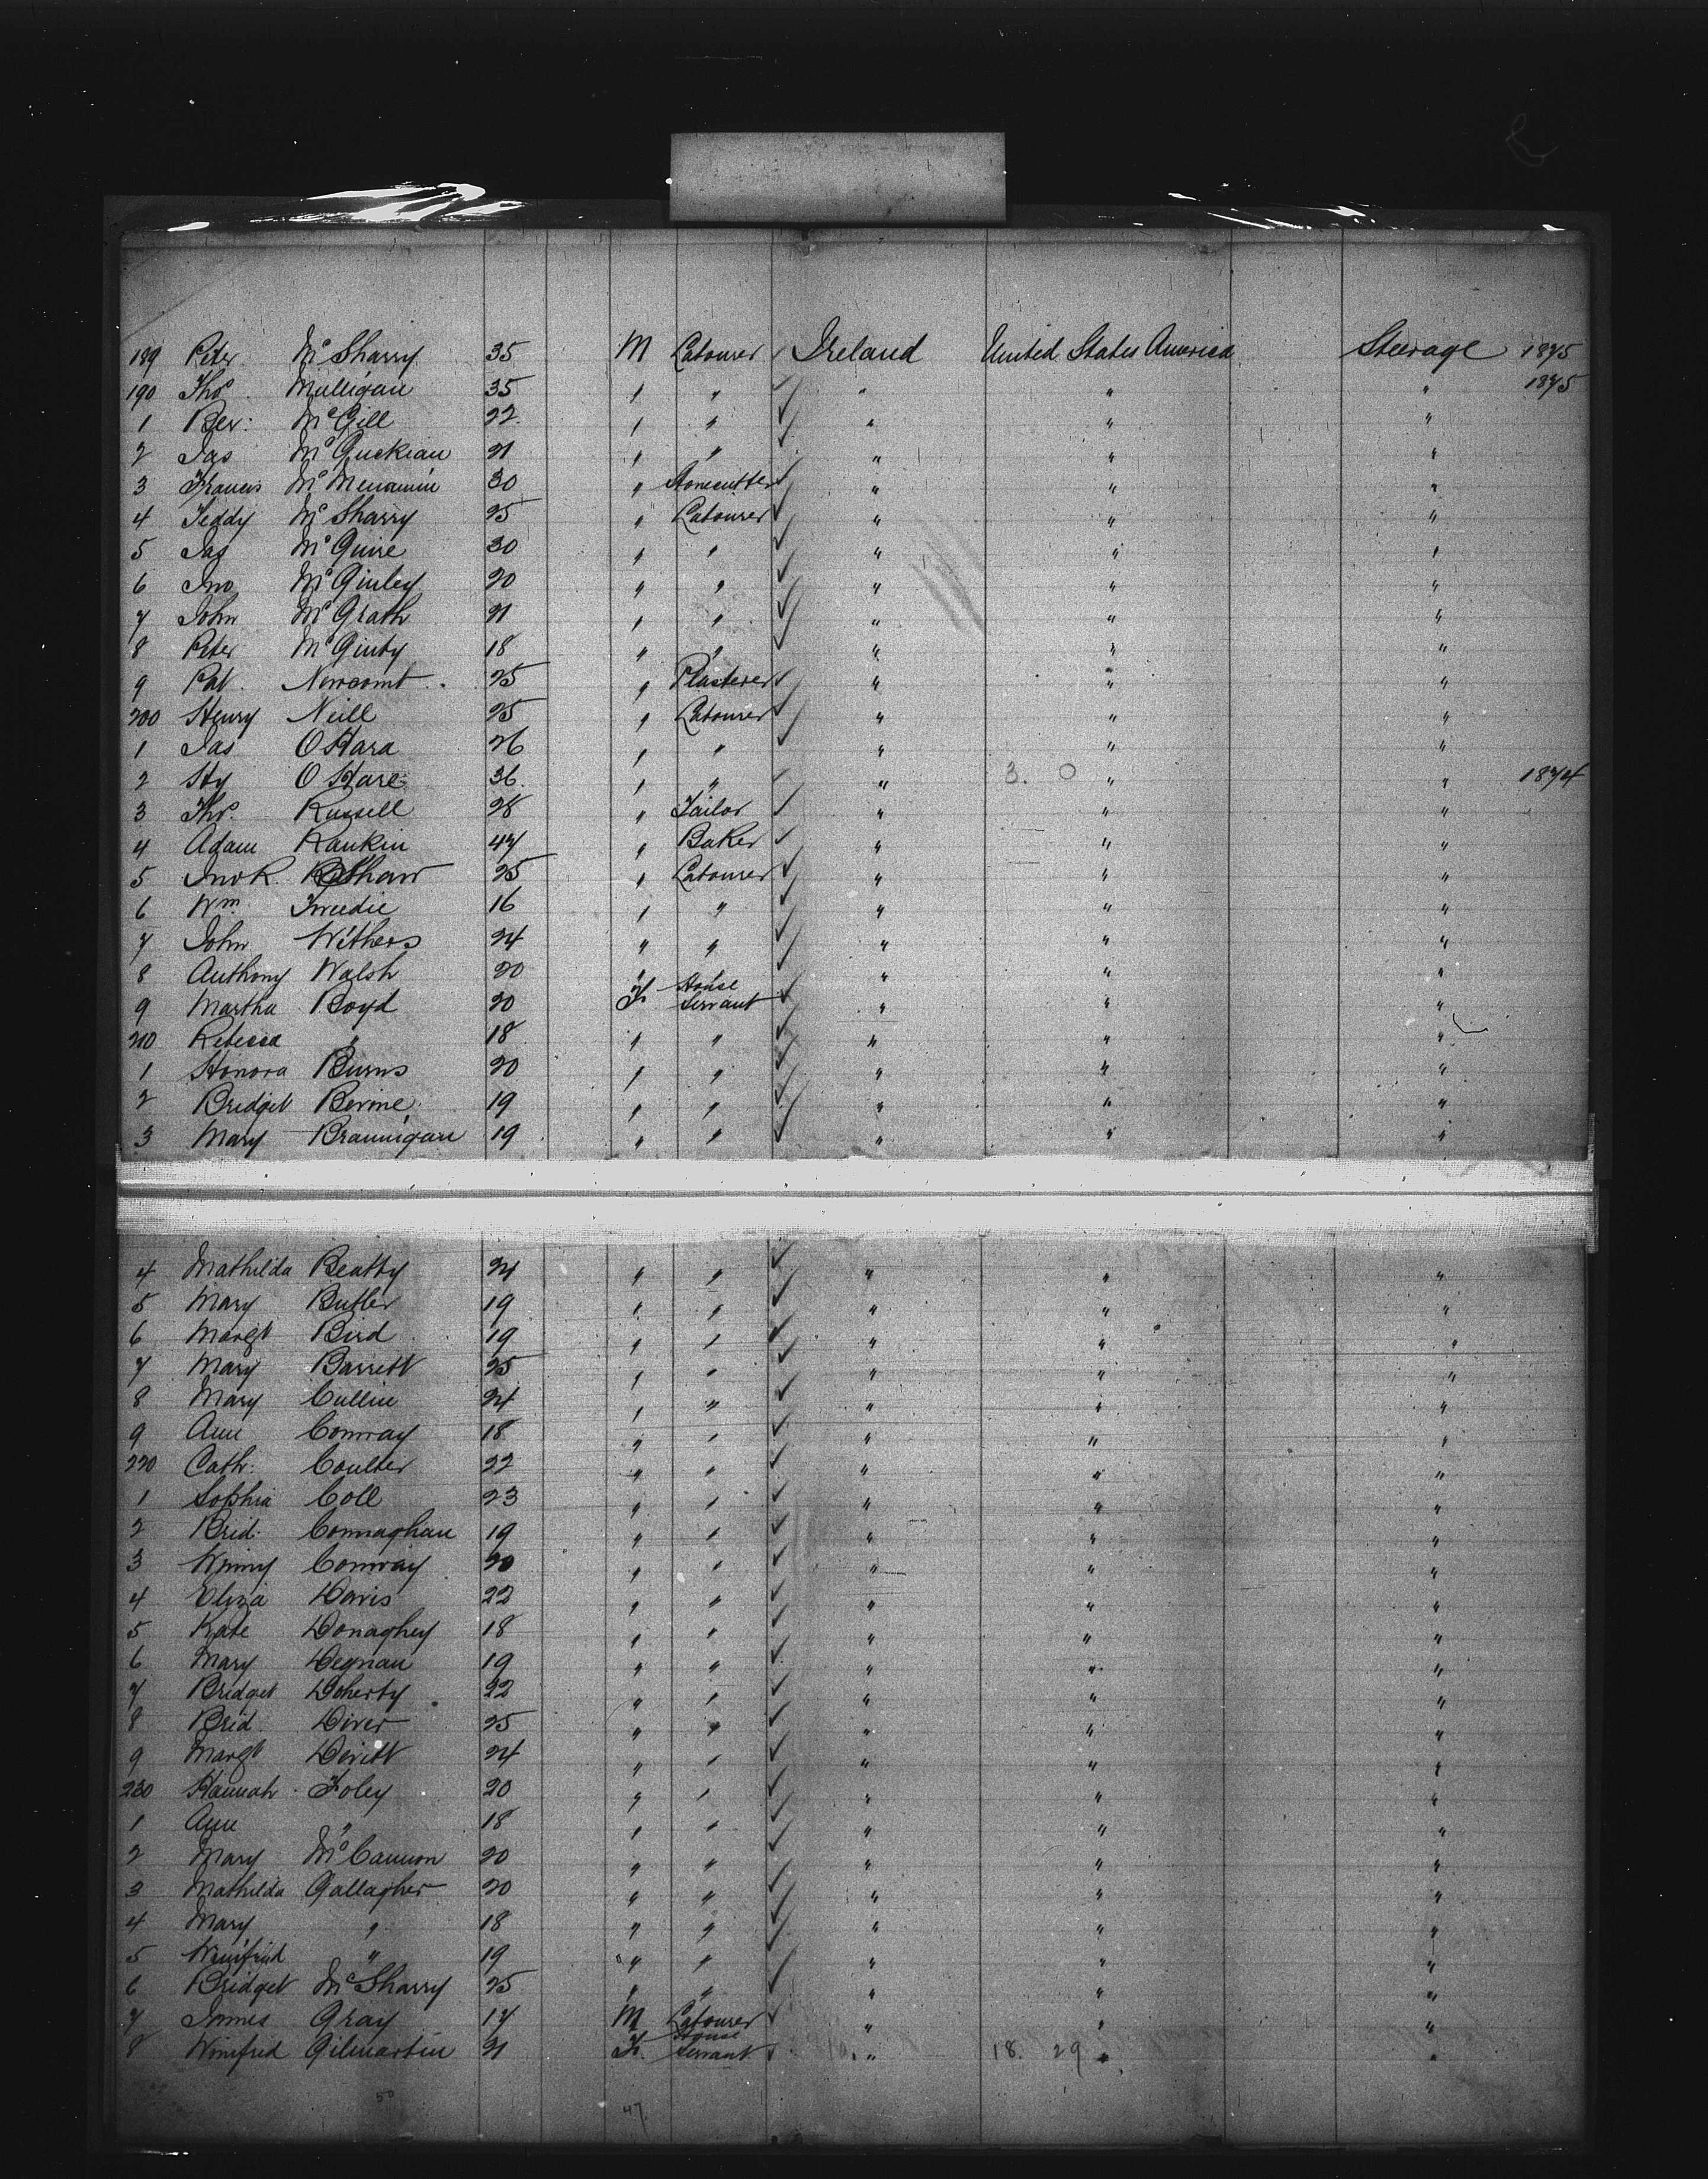 189 Peter McSharry 35 M Labourer Ireland United States America Steerage 1875
190 Thos Mulligan 35 " " " " " 1875
1 Ber: McGill 22 " " " " "
2 Jas McGuckian 21 " " " " "
3 Francis McMenamin 30 " Stonecutter " " "
4 Teddy McSharry 25 " Labourer " " "
5 Jas McGuire 30 " " " " "
6 Jno McGinley 20 " " " " "
7 John McGrath 21 " " " " "
8 Peter McGinty 18 " " " " "
9 Pat. Newcomt 25 " Plasterer " " "
200 Henry Neill 25 " Labourer " " "
1 Jas O'Hara 26 " " " " "
2 Hy O'Hare 36 " " " 3. 0 " " 1874
3 Thos. Russell 28 " Tailor " " "
4 Adam Rankin 47 " Baker " " "
5 Jno R. Shaw 25 " Labourer " " "
6 Wm. Tweedie 16 " " " " "
7 John Withers 24 " " " " "
8 Anthony Walsh 20 " " " "
9 Martha Boyd 20 F House Servant " " "
210 Rebecca " 18 " " " " "
1 Honora Burns 20 " " " " "
2 Bridget Berine 19 " " " " "
3 Mary Brannigan 19 " " " " "
4 Mathilda Beatty 24 " " " " "
5 Mary Butler 19 " " " " "
6 Margt Bird 19 " " " " "
7 Mary Barrett 25 " " " " "
8 Mary Cullin 24 " " " " "
9 Ann Conway 18 " " " " "
220 Cath: Coulter 22 " " " " "
1 Sophia Coll 23 " " " " "
2 Brid. Connaghan 19 " " " " "
3 Winny Conway 20 " " " " "
4 Eliza Davis 22 " " " " "
5 Kate Donaghey 18 " " " " "
6 Mary Degnan 19 " " " " "
7 Bridget Doherty 22 " " " " "
8 Brid. Diver 25 " " " " "
9 Margt Devitt 24 " " " " "
230 Hannah Foley 20 " " " " "
1 Ann " 18 " " " " "
2 Mary McCannon 20 " " " " "
3 Mathilda Gallagher 20 " " " " "
4 Mary " 18 " " " " "
5 Winifrid " 19 " " " " "
6 Bridget McSharry 25 " " " " "
7 James Gray 17 M Labourer " " "
8 Winifred Gilmartin 21 F. House Servant " 18. 29 " "
50
47